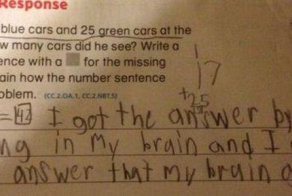 Response
blue cars and 25 green cars at the
w many cars did he see? Write a
ence with a for the missing
ain how the number sentence
oblem. (CC.2.OA.1, CC.2.NBT.5)
17
+25
= 42 I got the answer by
ng in my brain and I
answer that my brain